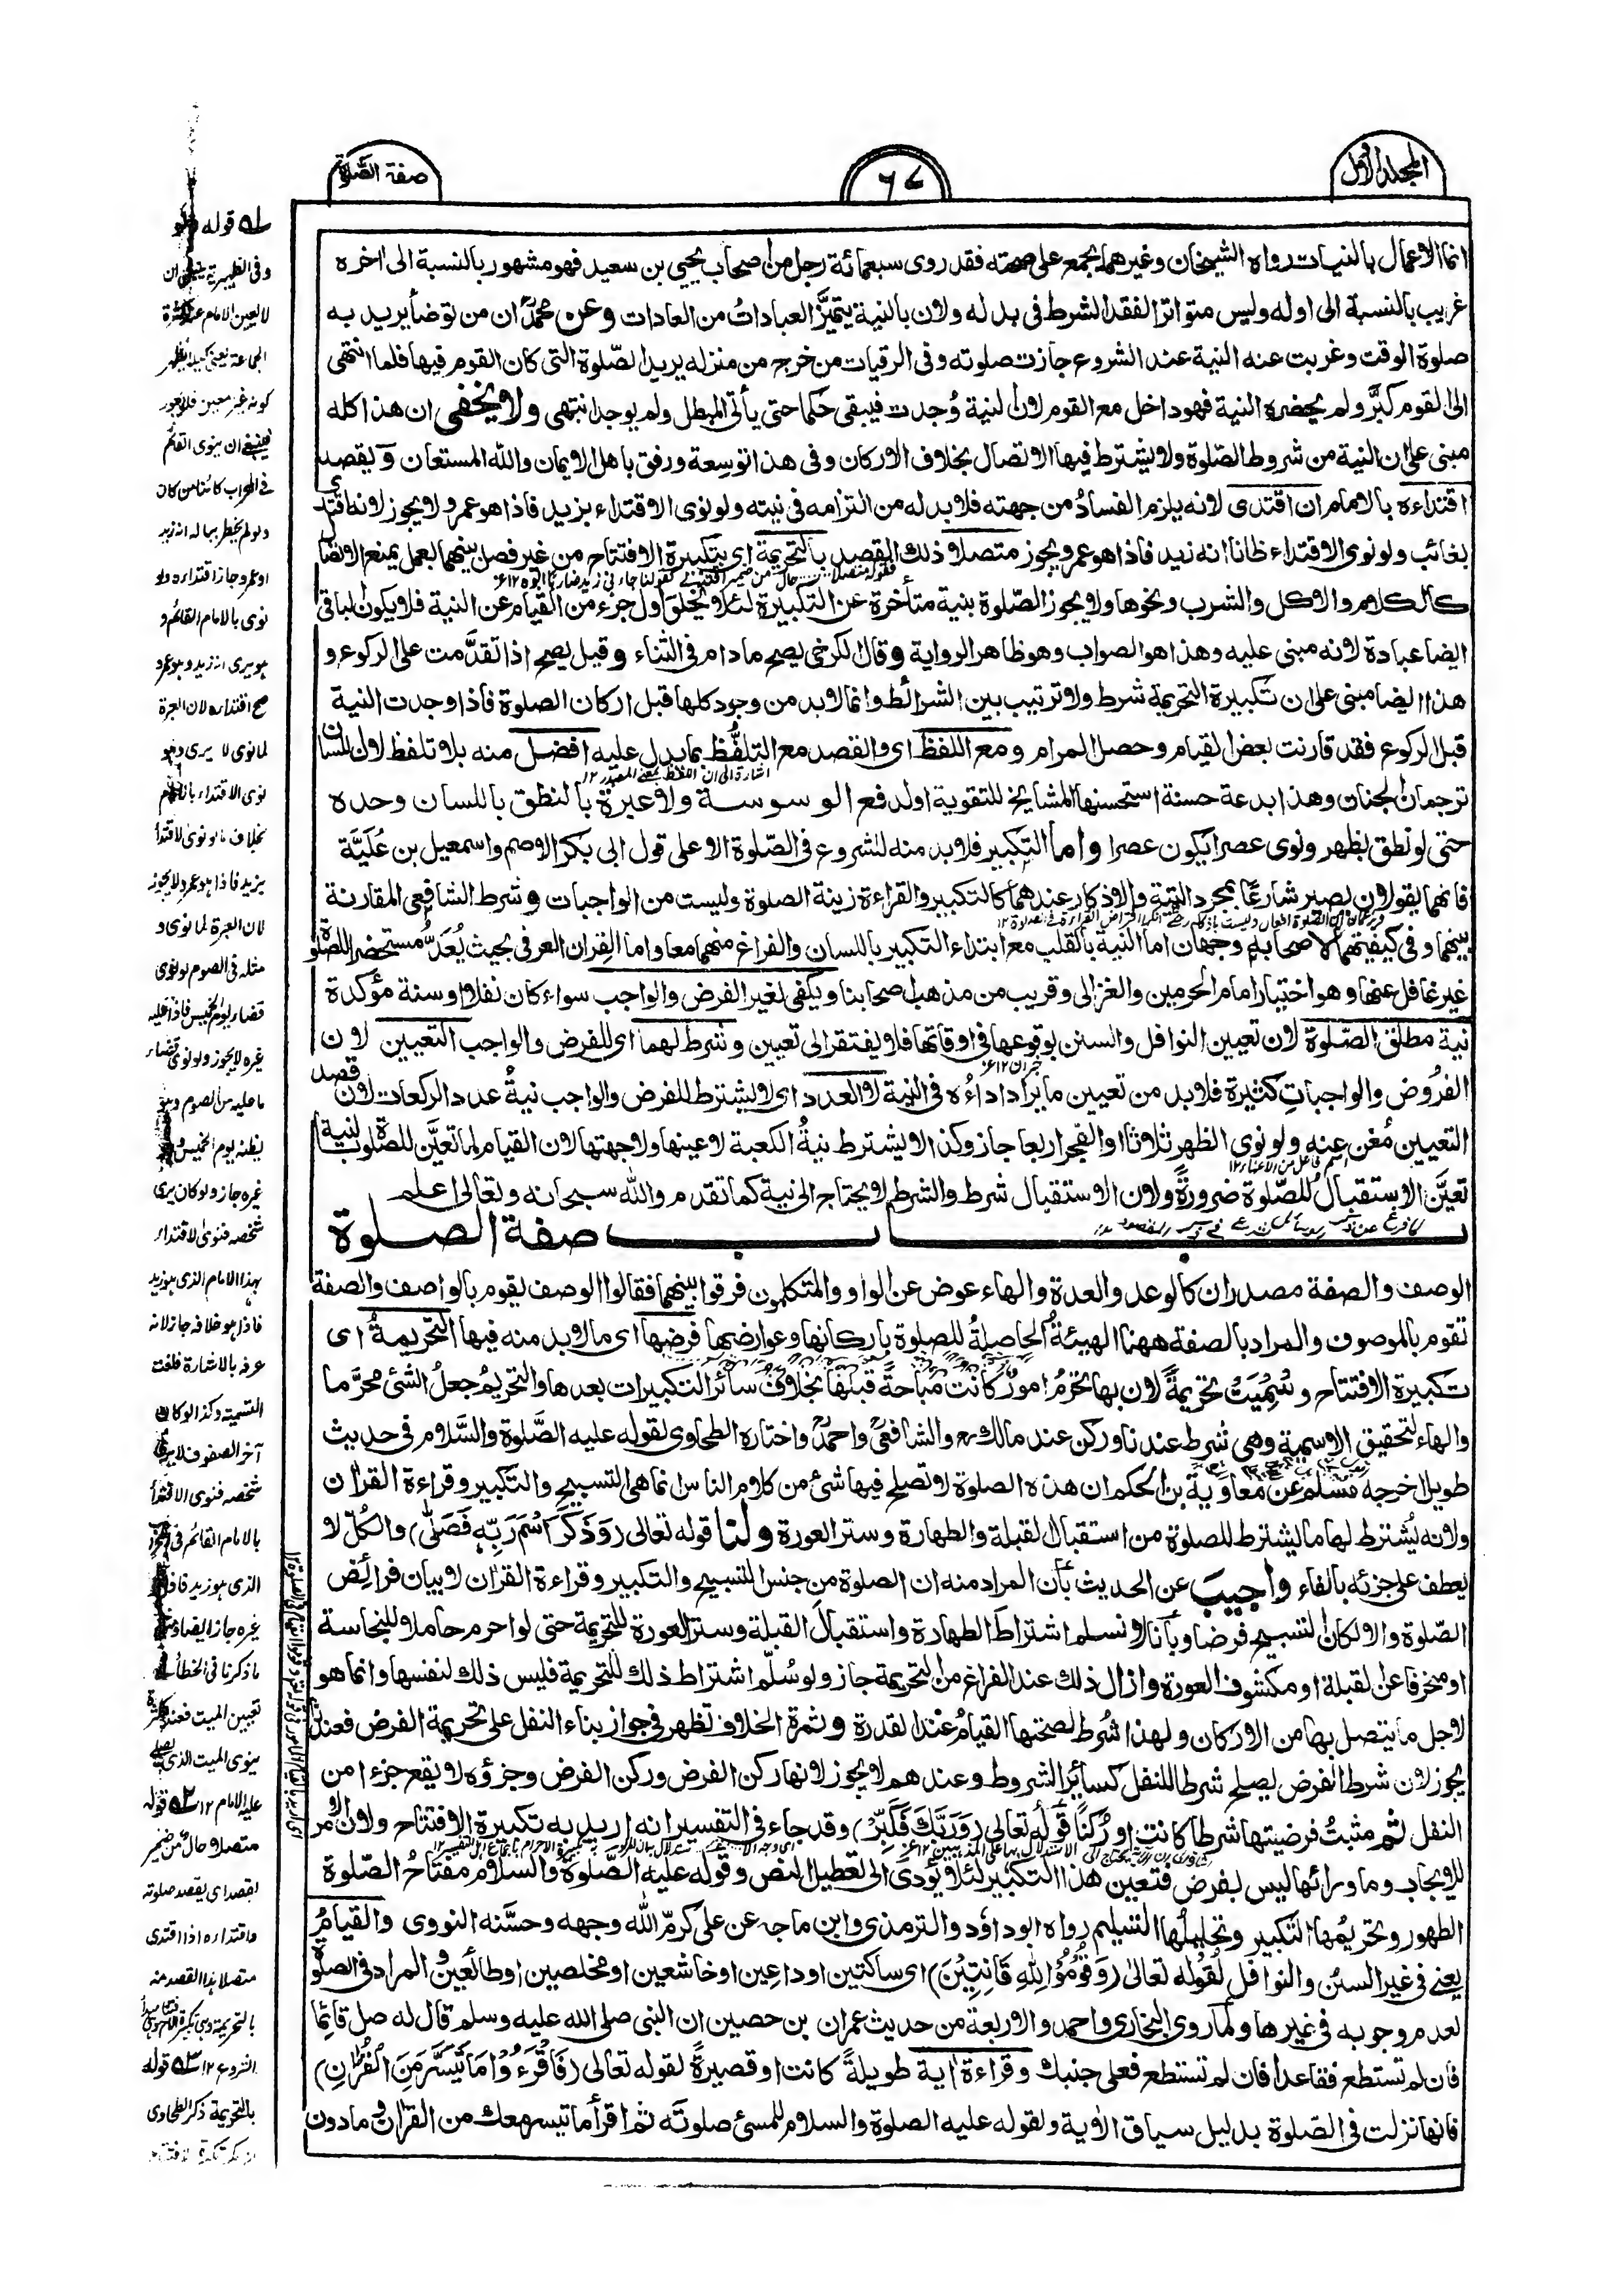 المجلد الاول
٦٧
صفة الصلوة
انما الاعمال بالنيات رواه الشيخان وغيرهما يجمع على صحته فقد روى سبعمائة رجل من اصحاب يحيى بن سعيد فهو مشهور بالنسبة الى اخره
غريب بالنسبة الى اوله وليس متواترا لفقد الشرط فى بدله ولان بالنية يتميز العبادات من العادات وعن محمد ان من توضأ يريد به
صلوة الوقت وغربت عنه النية عند الشروع جازت صلوته وفى الرقيات من خرج من منزله يريد الصلوة التى كان القوم فيها فلما انتهى
الى القوم كبر ولم يحضره النية فهو داخل مع القوم لان النية وجدت فيبقى حكما حتى يأتى المبطل ولم يوجد انتهى ولا يخفى ان هذا كله
مبنى على ان النية من شروط الصلوة ولا يشترط فيها الاتصال بخلاف الاركان وفى هذا توسعة ورفق باهل الايمان والله المستعان ويقصد
اقتداءه بالامام ان اقتدى لانه يلزم الفساد من جهته فلا بد له من التزامه فى نيته ولو نوى الاقتداء بزيد فاذا هو عمرو لا يجوز لانه اقتدى
بغائب ولو نوى الاقتداء ظانا انه زيد فاذا هو عمرو يجوز متصلا ذلك القصد بالتحريمة اى بتكبيرة الافتتاح من غير فصل بينهما بعمل يمنع الاتصال
كالكلام والاكل والشرب ونحوها ولا يجوز الصلوة بنية متأخرة عن التكبيرة لئلا يخلو اول جزء من القيام عن النية فلا يكون الباقى
ايضا عبادة لانه مبنى عليه وهذا هو الصواب وهو ظاهر الرواية وقال الكرخى يصح ما دام فى الثناء وقيل يصح اذا تقدمت على الركوع و
هذا ايضا مبنى على ان تكبيرة التحريمة شرط ولا ترتيب بين الشرائط وانما لا بد من وجود كلها قبل اركان الصلوة فاذا وجدت النية
قبل الركوع فقد قارنت بعض القيام وحصل المرام ومع اللفظ اى والقصد مع التلفظ بما يدل عليه افضل منه بلا تلفظ لان اللسان
اشارة الى ان اللفظ بمعنى المصدر ١٢
ترجمان الجنان وهذا بدعة حسنة استحسنها المشايخ للتقوية او لدفع الوسوسة ولا عبرة بالنطق باللسان وحده
حتى لو نطق بظهر ونوى عصرا يكون عصرا واما التكبير فلا بد منه للشروع فى الصلوة الا على قول ابى بكر الاصم واسمعيل بن علية
فانهما يقولان يصير شارعا بمجرد النية والاذكار عندهما كالتكبير والقراءة زينة الصلوة وليست من الواجبات وشرط الشافعى المقارنة
بينهما وفى كيفيتهما لاصحابه وجهان اما النية بالقلب مع ابتداء التكبير باللسان والفراغ منهما معا واما القران العرفى بحيث يعد مستحضر الصلوة
غير غافل عنها وهو اختيار امام الحرمين والغزالى وقريب من مذهب اصحابنا ويكفى لغير الفرض والواجب سواء كان نفلا او سنة مؤكدة
نية مطلق الصلوة لان تعيين النوافل والسنن بوقوعها فى اوقاتها فلا يفتقر الى تعيين وشرط لهما اى للفرض والواجب التعيين لان
الفروض والواجبات كثيرة فلا بد من تعيين ما يراد اداؤه فى النية لا العدد اى لا يشترط للفرض والواجب نية عدد الركعات لان قصد
التعيين مغن عنه ولو نوى الظهر ثلاثا او الفجر اربعا جاز وكذا لا يشترط نية الكعبة لا عينها ولا جهتها لان القيام لما تعين للصلوة بالنية
اسم فاعل من الاغناء ١٢
تعين الاستقبال للصلوة ضرورة ولان الاستقبال شرط والشرط لا يحتاج الى نية كما تقدم والله سبحانه وتعالى اعلم
باب صفة الصلوة
الوصف والصفة مصدران كالوعد والعدة والهاء عوض عن الواو والمتكلمون فرقوا بينهما فقالوا الوصف يقوم بالواصف والصفة
تقوم بالموصوف والمراد بالصفة ههنا الهيئة الحاصلة للصلوة باركانها وعوارضها فرضها اى ما لا بد منه فيها التحريمة اى
تكبيرة الافتتاح وسميت تحريمة لان بها تحرم امور كانت مباحة قبلها بخلاف سائر التكبيرات بعدها والتحريم جعل الشئ محرما
والهاء لتحقيق الاسمية وهى شرط عندنا وركن عند مالك والشافعى واحمد واختاره الطحاوى لقوله عليه الصلوة والسلام فى حديث
طويل اخرجه مسلم عن معاوية بن الحكم ان هذه الصلوة لا تصلح فيها شئ من كلام الناس انما هى التسبيح والتكبير وقراءة القران
ولانه يشترط لها ما يشترط للصلوة من استقبال القبلة والطهارة وستر العورة ولنا قوله تعالى (وَذَكَرَ اسْمَ رَبِّهٖ فَصَلّٰى) والكل لا
يعطف على جزئه بالفاء واجيب عن الحديث بان المراد منه ان الصلوة من جنس التسبيح والتكبير وقراءة القران لا بيان فرائض
الصلوة والا لكان التسبيح فرضا وبانا لا نسلم اشتراط الطهارة واستقبال القبلة وستر العورة للتحريمة حتى لو احرم حاملا للنجاسة
او منحرفا عن القبلة او مكشوف العورة وازال ذلك عند الفراغ من التحريمة جاز ولو سلم اشتراط ذلك للتحريمة فليس ذلك لنفسها وانما هو
لاجل ما يتصل بها من الاركان ولهذا شرط لصحتها القيام عند القدرة وثمرة الخلاف تظهر فى جواز بناء النفل على تحريمة الفرض فعندنا
يجوز لان شرط الفرض يصلح شرطا للنفل كسائر الشروط وعندهم لا يجوز لانها ركن الفرض وركن الفرض وجزؤه لا يقع جزءا من
النفل ثم مثبت فرضيتها شرطا كانت او ركنا قوله تعالى (وَرَبَّكَ فَكَبِّرْ) وقد جاء فى التفسير انه اريد به تكبيرة الافتتاح ولان الامر
للايجاب وما ورائها ليس بفرض فتعين هذا التكبير لئلا يؤدى الى تعطيل النص وقوله عليه الصلوة والسلام مفتاح الصلوة
الطهور وتحريمها التكبير وتحليلها التسليم رواه ابو داود والترمذى وابن ماجه عن على كرم الله وجهه وحسنه النووى والقيام
يعنى فى غير السنن والنوافل لقوله تعالى (وَقُوْمُوْا لِلّٰهِ قَانِتِيْنَ) اى ساكتين او داعين او خاشعين او مخلصين او طائعين والمراد فى الصلوة
لعدم وجوبه فى غيرها ولما روى البخارى واحمد والاربعة من حديث عمران بن حصين ان النبى صلى الله عليه وسلم قال له صل قائما
فان لم تستطع فقاعدا فان لم تستطع فعلى جنبك وقراءة اية طويلة كانت او قصيرة لقوله تعالى (فَاقْرَءُوْا مَا تَيَسَّرَ مِنَ الْقُرْاٰنِ)
فانها نزلت فى الصلوة بدليل سياق الاية ولقوله عليه الصلوة والسلام للمسئ صلوته ثم اقرأ ما تيسر معك من القران وما دون
قوله
وفى الظهيرية ينبغى ان
لا يعين الامام عند كثرة
الجماعة يعنى كيلا يظهر
كونه غير معين فلا يجوز
فينبغى ان ينوى القائم
فى المحراب كائنا من كان
ولو لم يخطر بباله انه زيد
او عمرو جاز اقتداءه ولو
نوى بالامام القائم و
هو يرى انه زيد وهو عمرو
صح اقتداءه لان العبرة
لما نوى لا يرى وهو
نوى الاقتداء بالامام
بخلاف ما لو نوى الاقتداء
بزيد فاذا هو عمرو لا يجوز
لان العبرة لما نوى و
مثله فى الصوم لو نوى
قضاء يوم الخميس فاذا عليه
غيره لا يجوز ولو نوى قضاء
ما عليه من الصوم وهو
يظنه يوم الخميس و
غيره جاز ولو كان يرى
شخصه فنوى الاقتداء
بهذا الامام الذى هو زيد
فاذا هو خلافه جاز لانه
عرفه بالاشارة فلغت
التسمية وكذا لو كان
آخر الصفوف لا يرى
شخصه فنوى الاقتداء
بالامام القائم فى المحراب
الذى هو زيد فاذا هو
غيره جاز ايضا
ما ذكرنا فى الخطأ
تعيين الميت فعند الكثرة
ينوى الميت الذى يصلى
عليه الامام ١٢ قوله
متصلا حال من ضمير
يقصد اى يقصد صلوته
واقتداءه اذا اقتدى
متصلا هذا القصد منه
بالتحريمة
الشروع ١٢ قوله
بالتحريمة ذكر الطحاوى